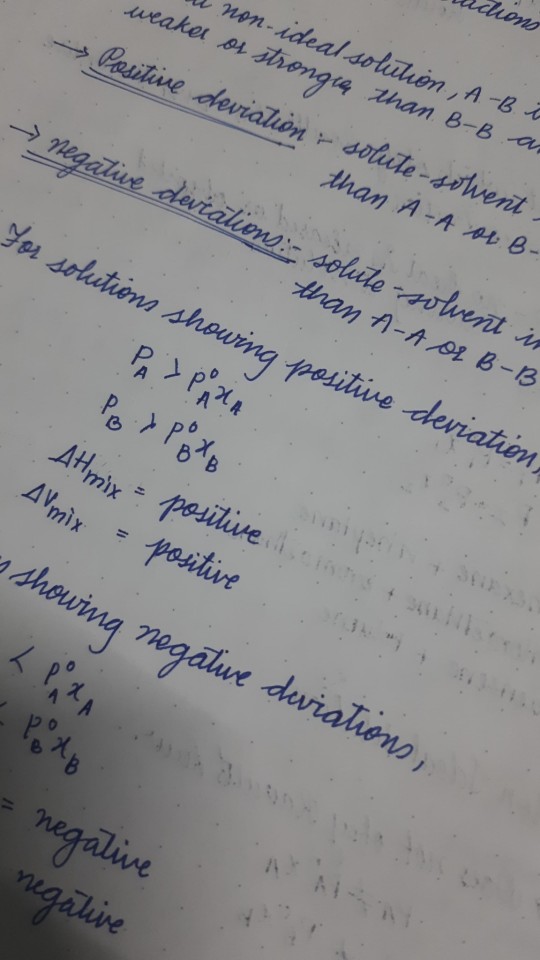 non-ideal solution, A-B
weaker or stronger than B-B
→ Positive deviation :- solute-solvent
than A-A or B-
→ negative deviations:- solute-solvent
than A-A or B-B
For solutions showing positive deviation,
P_A > P°_A x_A
P_B > P°_B x_B
ΔH_mix = positive
ΔV_mix = positive
showing negative deviations,
< P°_A x_A
< P°_B x_B
= negative
negative